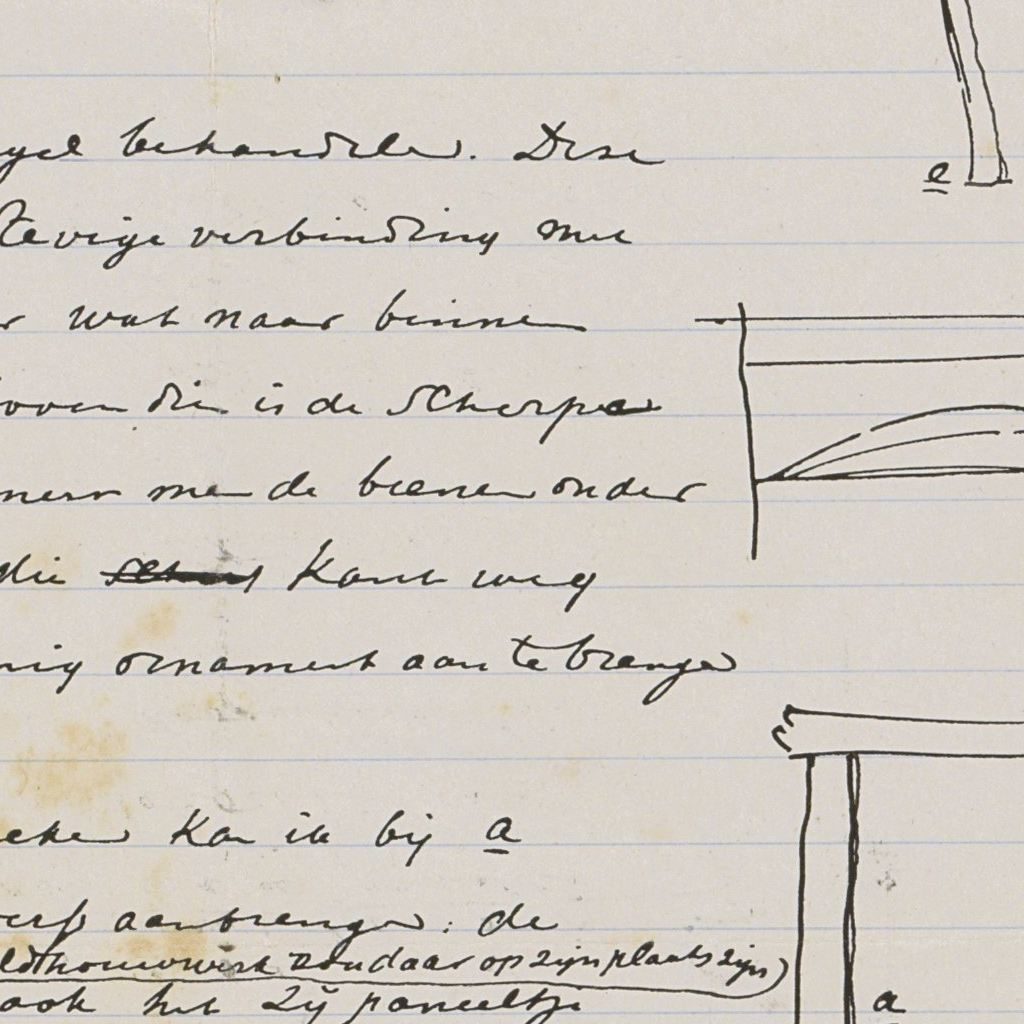 behandelen. Deze
e
stevige verbinding met
wat naar binnen
boven die is de scherpe
men de beenen onder
die kant weg
ornament aan te brengen
kan ik bij a
aanbrengen: de
beeldhouwwerk zou daar op zijn plaats zijn)
ook het zij paneeltje
a